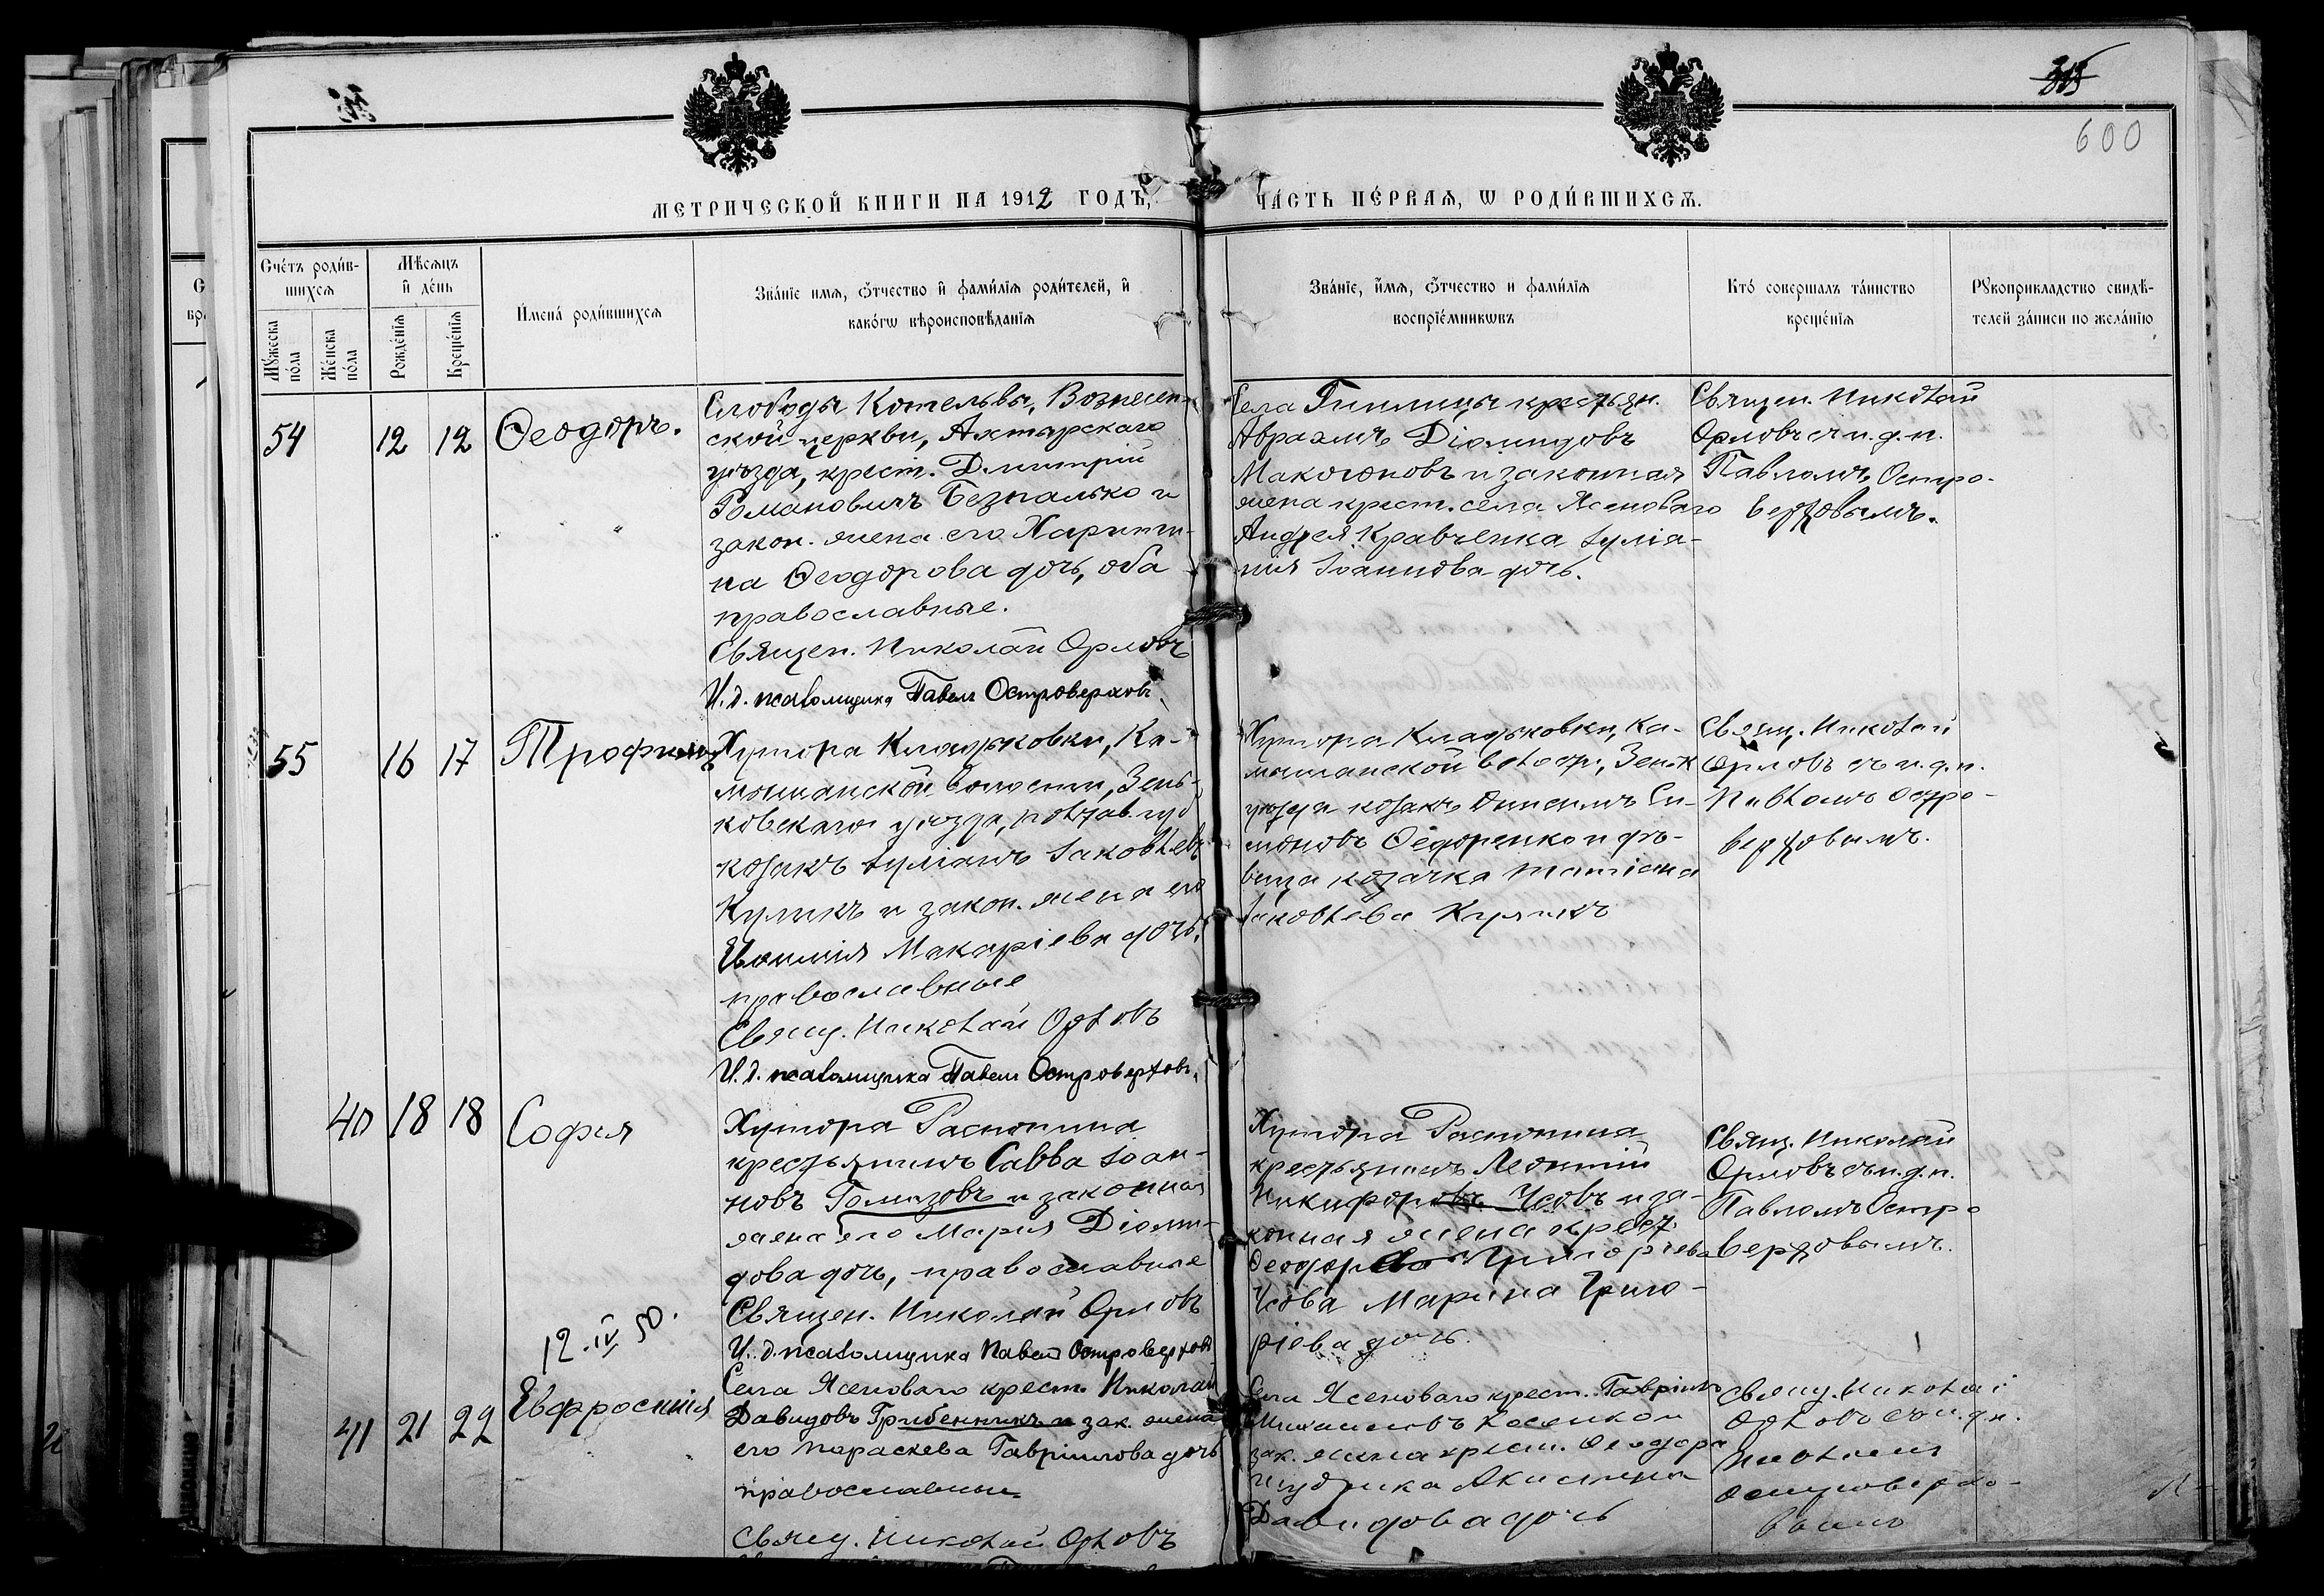 315
600
МЕТРИЧЕСКОЙ КНИГИ НА 1912 ГОДЪ,
ЧА́СТЬ ПЕ́РВАЯ, Ѡ РОДИ́ВШИХСѦ.
Сче́тъ роди́в-
шихсѧ
Мꙋ́жеска по́ла
Же́нска по́ла
Мѣ́сѧцъ и де́нь
Рожде́нїѧ
Креще́нїѧ
Имена̀ роди́вшихсѧ
Зва́нїе имѧ, ѻ҆́тчество и҆ фами́лїѧ роди́телей, и҆
како́гѡ вѣроисповѣ́данїѧ
Зва́нїе, и҆́мѧ, ѻ҆́тчество и фами́лїѧ
воспрїе́мникѡвъ
Кто̀ соверша́лъ та́инство
креще́нїѧ
Рꙋкоприкладство свидѣ́-
телей за́писи по жела́нїю
54
12 12
Ѳеодоръ.
Слободы Котельвы, Вознесен-
ской церкви, Ахтырскаго
уѣзда, крест. Димитрій
Романовичъ Безпалько и
закон. жена его Харити-
на Ѳеодорова дочь, оба
православные.
Священ. Николай Орловъ
И. д. псаломщика Павелъ Островерховъ
Села крестьян.
Авраамъ Діомидовъ
Макогоновъ и законная
жена крест. села Ясеноваго
Андрея Кравченка Іуліа-
нія Іоаннова дочь.
Священ. Николай
Орловъ съ и. д. п.
Павломъ Остро-
верховымъ.
55
16 17
Трофимъ
Хутора Кладьковки, Ка-
мышанской волости, Зень-
ковскаго уѣзда, Полтав. губ
козакъ Іуліанъ Іаковлевъ
Куликъ и закон. жена его
Макаріева дочь,
православные
Свящ. Николай Орловъ
И. д. псаломщика Павелъ Островерховъ.
Хутора Кладьковки, Ка-
мышанской волости, Зеньк
уѣзда козакъ Онисимъ Си-
моновъ Ѳедоренко и дѣ-
вица козачка Татіана
Іаковлева Куликъ
Свящ. Николай
Орловъ съ и. д. п.
Павломъ Остро-
верховымъ.
40
18 18
Софія
Хутора Распопина
крестьянинъ Савва Іоан-
новъ Гомазовъ и законная
жена его Марія Діоми-
дова дочь, православные
Священ. Николай Орловъ
И. д. псаломщика Павелъ Островерховъ
Хутора Распопина
крестьянинъ Леонтій
Никифоровъ Усовъ и за-
конная жена крест.
Ѳеодора Григорьева
Усова Марина Григо-
ріева дочь.
Свящ. Николай
Орловъ съ и. д. п.
Павломъ Остро
верховымъ.
12.IV 50.
41
21 22
Евфросинія
Села Ясеноваго крест. Николай
Давидовъ Грибенникъ и зак. жена
его Параскева Гавріилова дочь
православные
Свящ. Николай Орловъ
Села Ясеноваго крест. Гавріилъ
Михаиловъ Косенко и
зак. жена крест. Ѳеодора
Акилина
Давидова дочь
Свящ. Николай
Орловъ съ и. д. п.
Павломъ
Островерхо-
вымъ